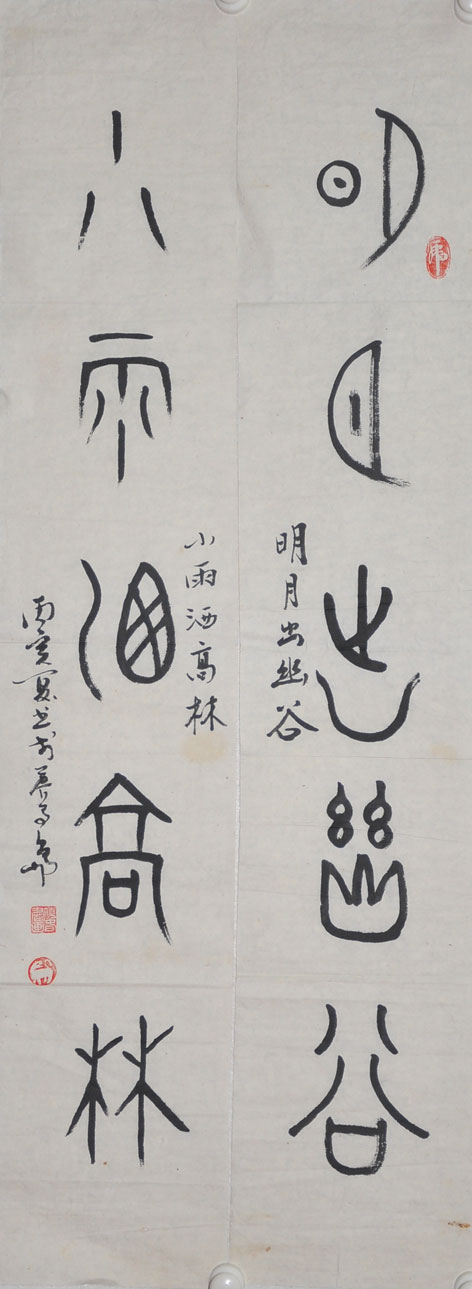 明月出幽谷
明月出幽谷
小雨洒高林
小雨洒高林
丙寅夏书于